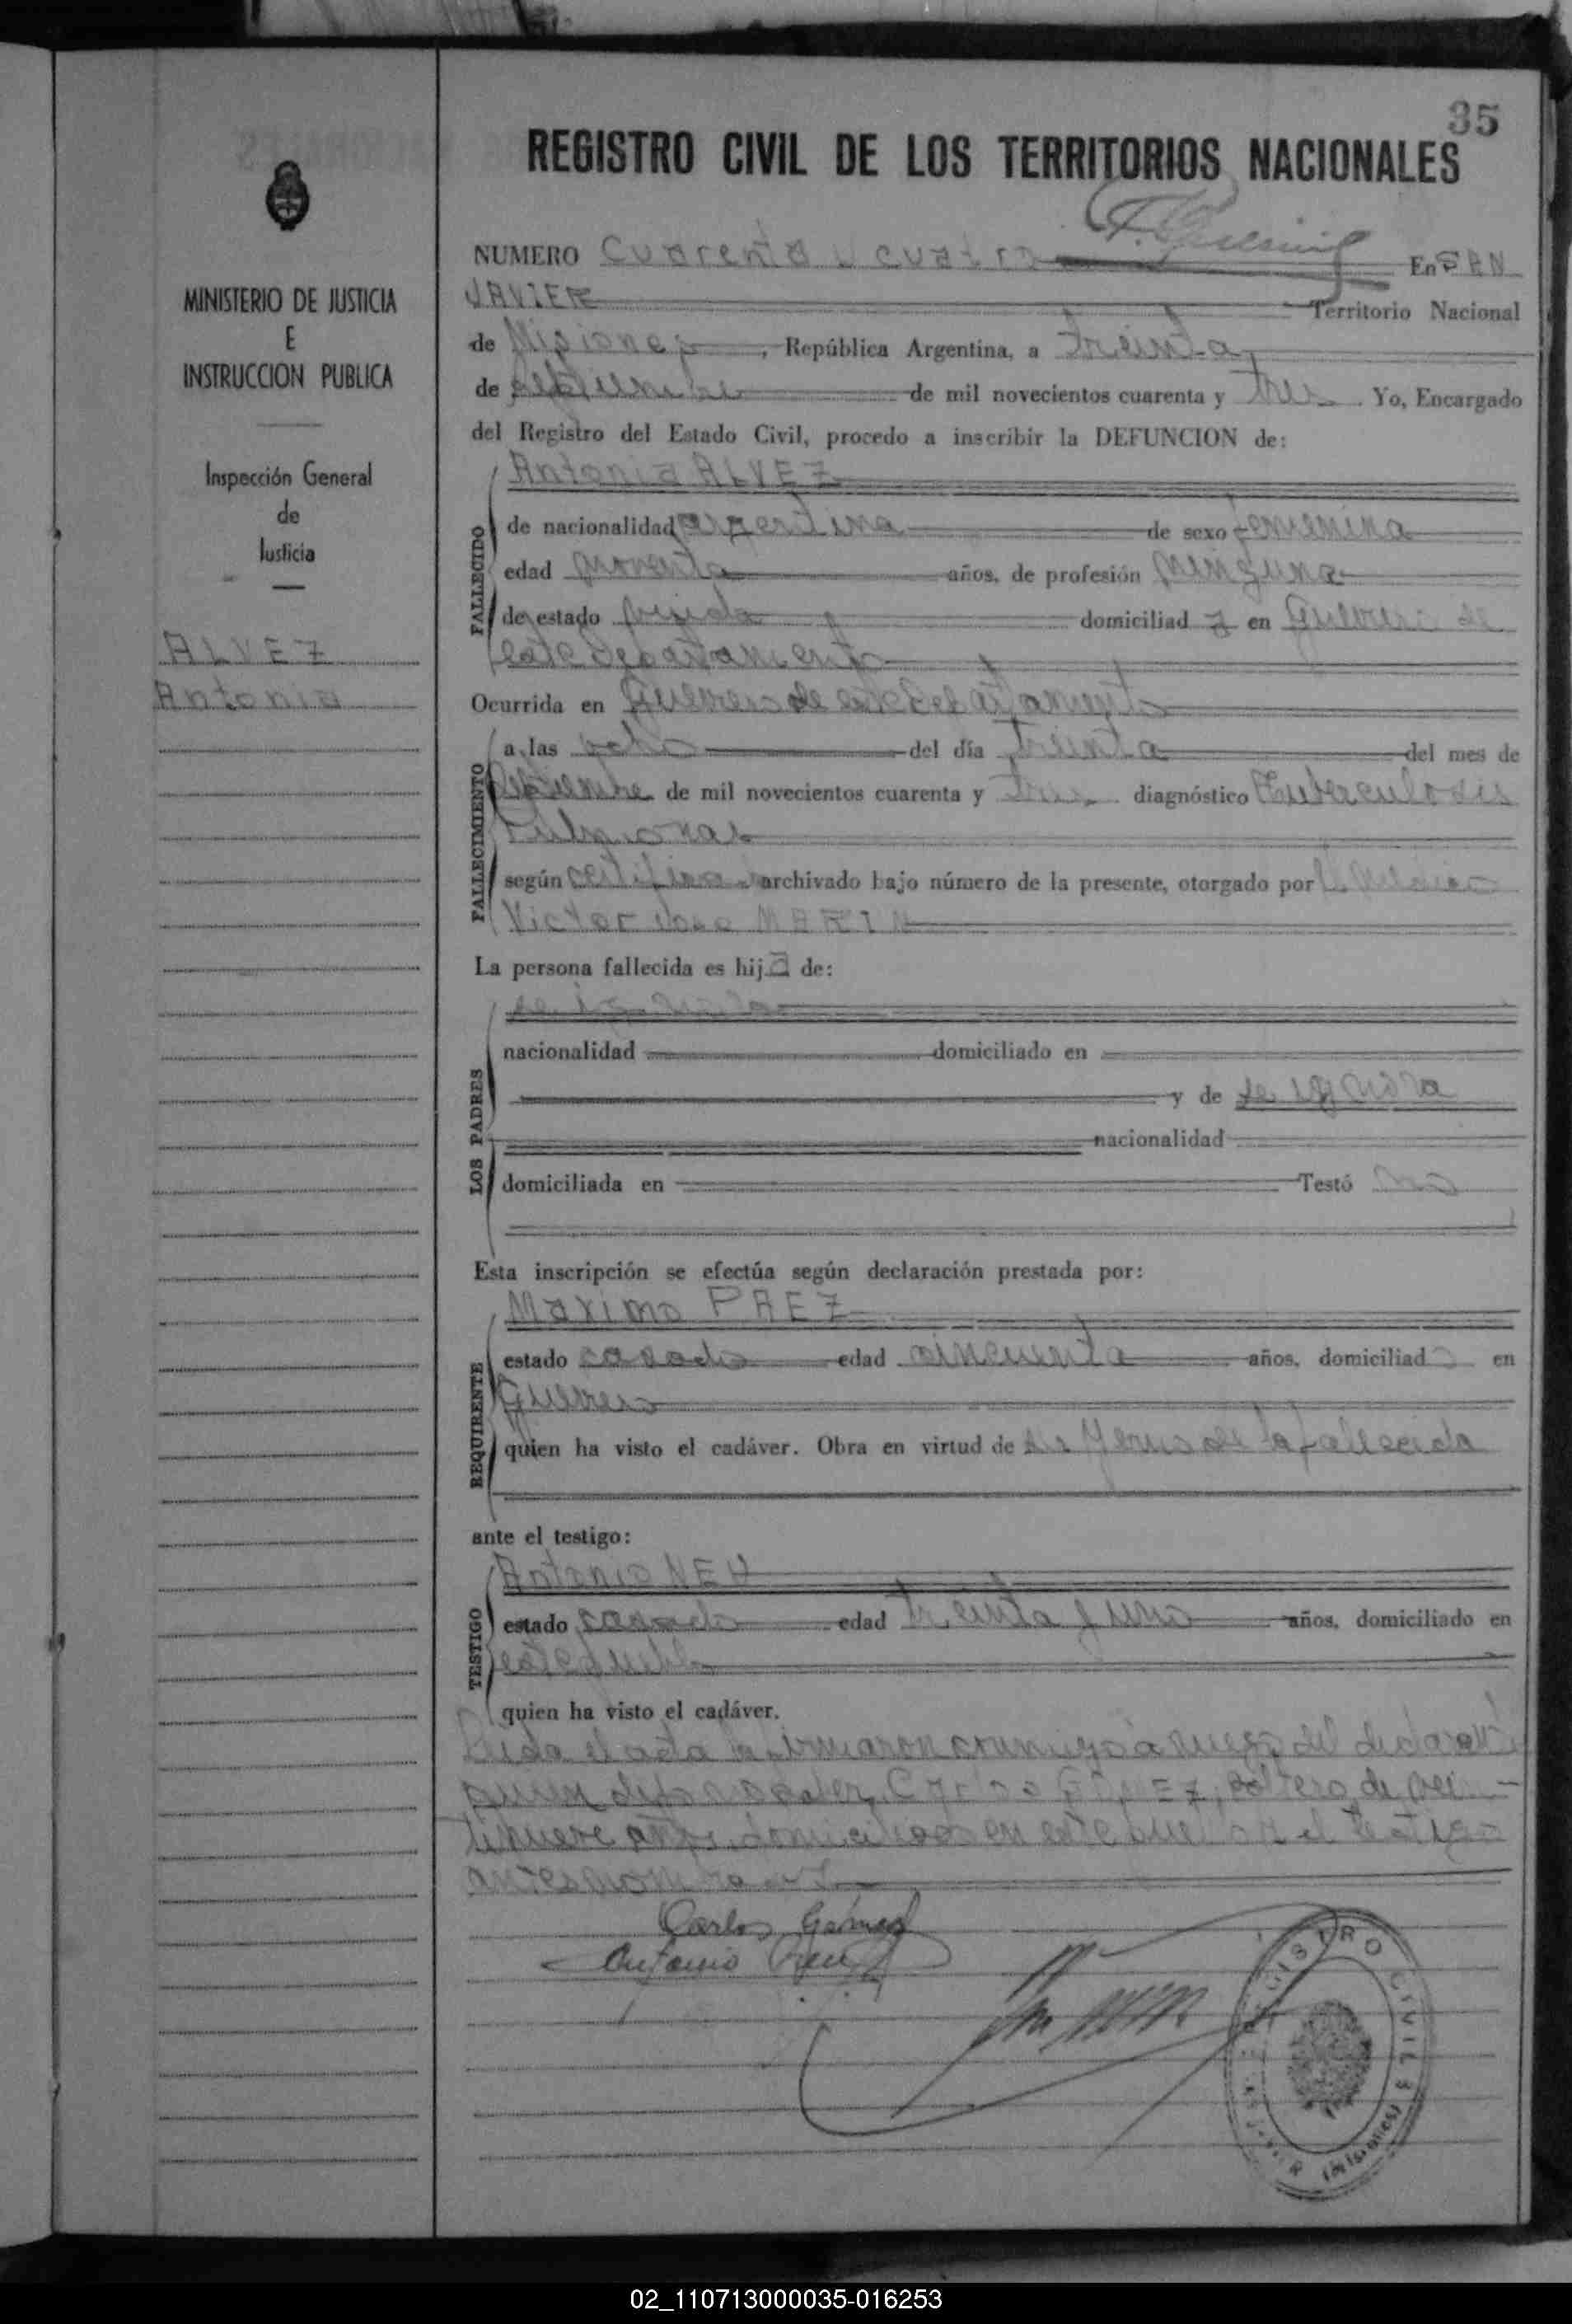 35
REGISTRO CIVIL DE LOS TERRITORIOS NACIONALES
MINISTERIO DE JUSTICIA
E
INSTRUCCION PUBLICA
Inspección General
de
Justicia
ALVEZ
Antonia
NUMERO Cuarenta y cuatro En SAN
JAVIER Territorio Nacional
de Misiones, República Argentina, a treinta
de septiembre de mil novecientos cuarenta y tres. Yo, Encargado
del Registro del Estado Civil, procedo a inscribir la DEFUNCION de:
FALLECIDO
Antonia ALVEZ
de nacionalidad argentina de sexo femenina
edad noventa años, de profesión ninguna
de estado viuda domiciliad a en Guerrero de
este departamento
Ocurrida en Guerrero de este departamento
FALLECIMIENTO
a las ocho del día treinta del mes de
septiembre de mil novecientos cuarenta y tres diagnóstico Tuberculosis
Pulmonar
según certificado archivado bajo número de la presente, otorgado por el médico
Victor José MARIN
La persona fallecida es hija de:
LOS PADRES
se ignora
nacionalidad domiciliado en
y de se ignora
nacionalidad
domiciliada en Testó no
Esta inscripción se efectúa según declaración prestada por:
REQUIRENTE
Maximo PAEZ
estado casado edad cincuenta años, domiciliado en
Guerrero
quien ha visto el cadáver. Obra en virtud de ser Yerno de la fallecida
ante el testigo:
TESTIGO
Antonio NEU
estado casado edad treinta y uno años, domiciliado en
este pueblo
quien ha visto el cadáver.
Leida el acta la firmaron conmigo a ruego del declarante
quien dijo no saber, Carlos GOMEZ, soltero, de vein-
tinueve años, domiciliado en este pueblo y el testigo
antes nombrado
Carlos Gómez
Antonio Neu
REGISTRO CIVIL
(Misiones)
02_110713000035-016253